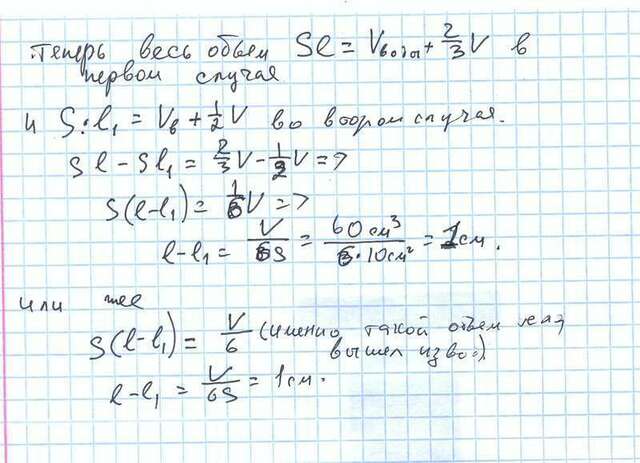 теперь весь объем Sl = Vводы + 2/3 V в
первом случая
и S·l₁ = Vв + 1/2 V во втором случая.
Sl - Sl₁ = 2/3 V - 1/2 V =>
S(l-l₁) = 1/6 V =>
l-l₁ = V/6S = 60 см³/6·10см² = 1см.
или же
S(l-l₁) = V/6 (именно такой объем
вышел из воды)
l-l₁ = V/6S = 1см.